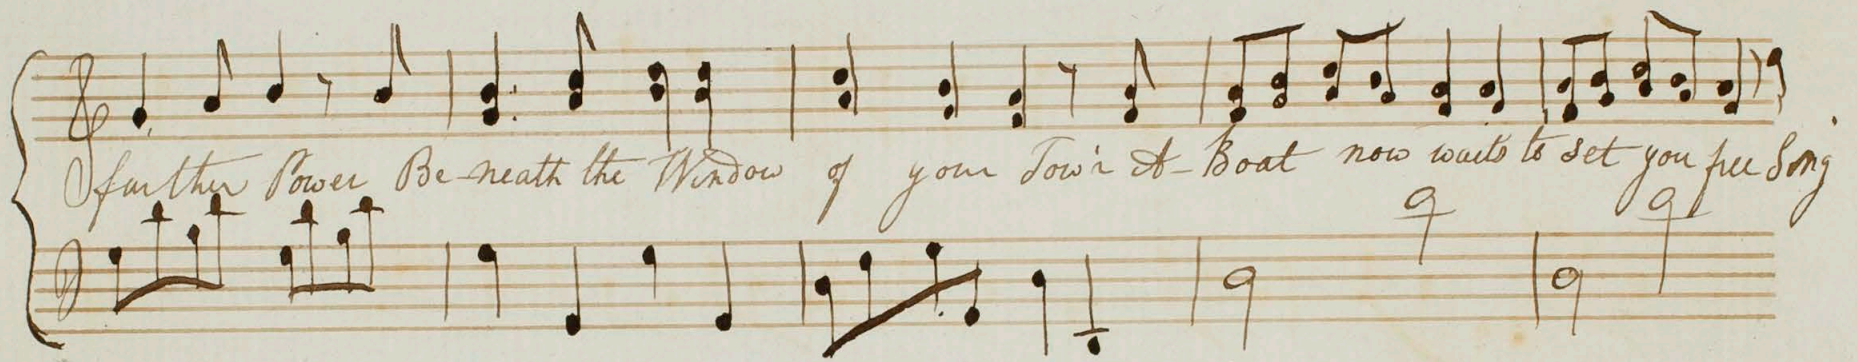 further Power Be-neath the Window of your Tow'r A-Boat now waits to set you free Song